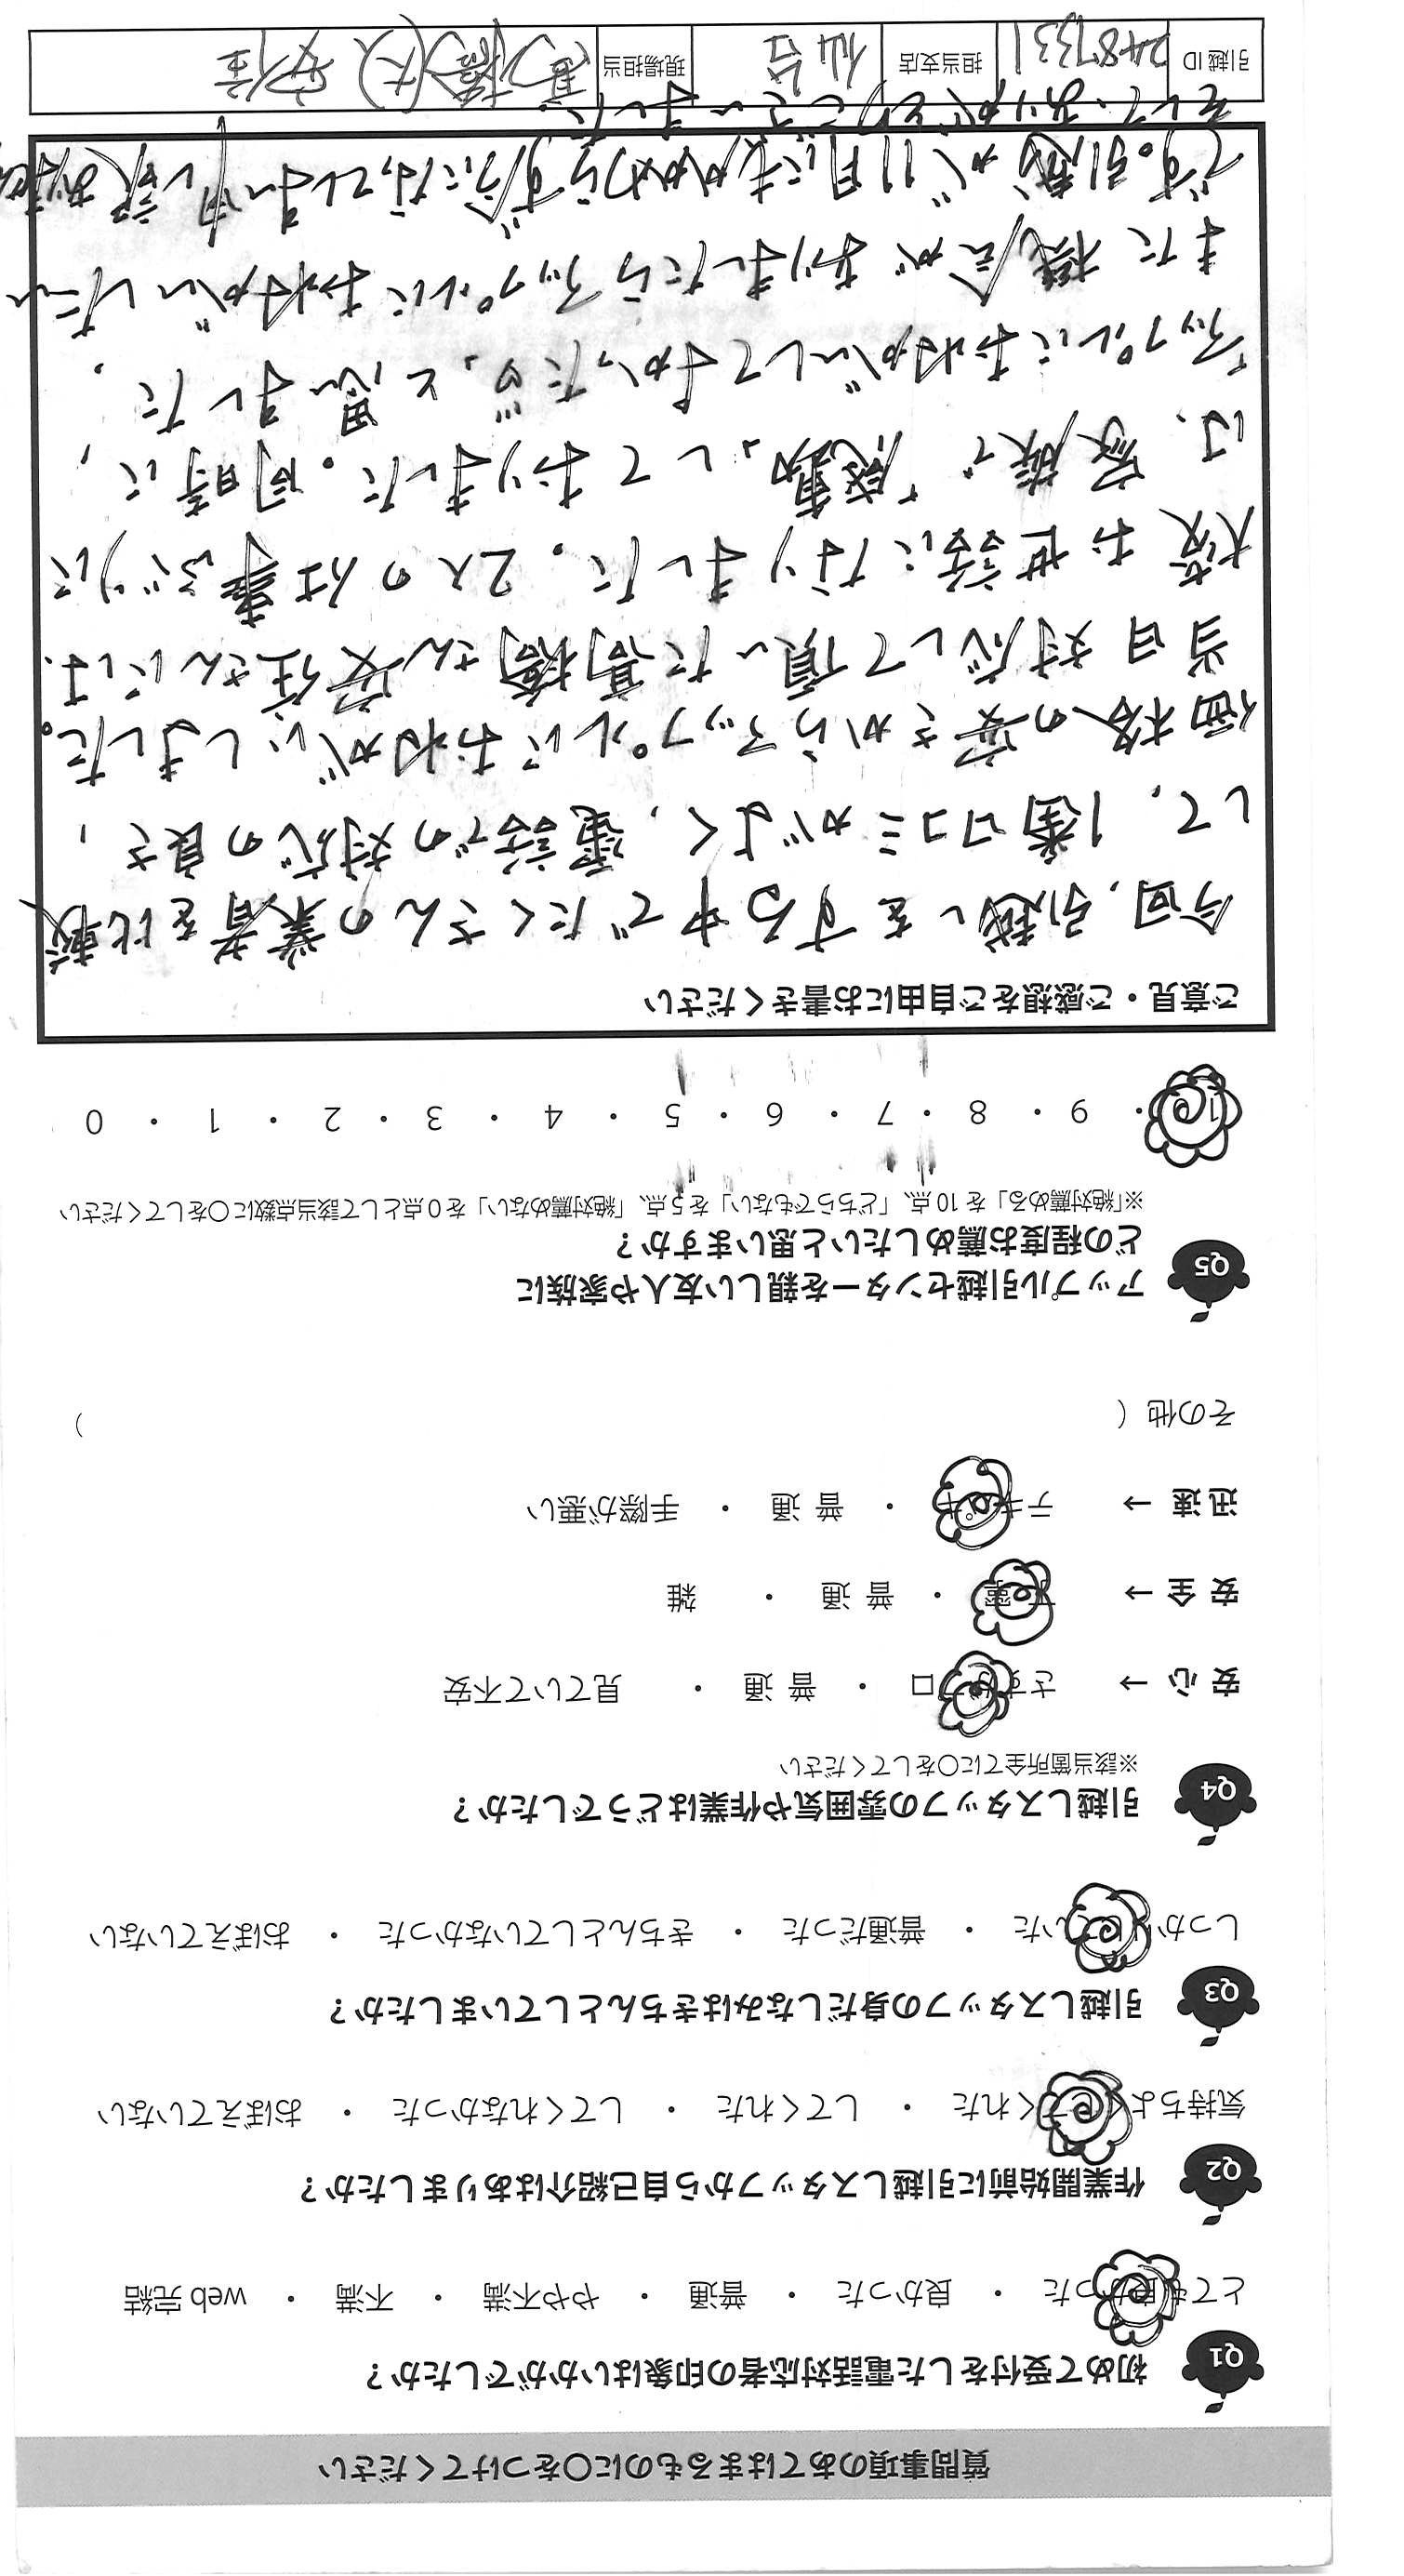 質問事項のあてはまるものに○をつけてください
Q1 初めて受付をした電話対応者の印象はいかがでしたか？
とても良かった ・ 良かった ・ 普通 ・ やや不満 ・ 不満 ・ web 完結
Q2 作業開始前に引越しスタッフから自己紹介はありましたか？
気持ちよくしてくれた ・ してくれた ・ してくれなかった ・ おぼえていない
Q3 引越しスタッフの身だしなみはきちんとしていましたか？
しっかりしていた ・ 普通だった ・ きちんとしていなかった ・ おぼえていない
Q4 引越しスタッフの雰囲気や作業はどうでしたか？
※該当箇所全てに○をしてください
安 心 → さすがプロ ・ 普 通 ・ 見ていて不安
安 全 → 丁寧 ・ 普 通 ・ 雑
迅 速 → テキパキ ・ 普 通 ・ 手際が悪い
その他（ ）
Q5 アップル引越センターを親しい友人や家族に
どの程度お薦めしたいと思いますか？
※「絶対薦める」を 10 点、「どちらでもない」を 5 点、「絶対薦めない」を 0 点として該当点数に○をしてください
10 ・ 9 ・ 8 ・ 7 ・ 6 ・ 5 ・ 4 ・ 3 ・ 2 ・ 1 ・ 0
ご意見・ご感想をご自由にお書きください
今回、引越しをする中でたくさんの業者を比較
して、1番口コミがよく、電話での対応の良さ、
価格の安さからアップルにおねがいしました。
当日対応して頂いた髙橋さん安住さんには、
大変お世話になりました。2人の仕事ぶりに
は、家族で「感動」しておりました。同時に、
「アップルにおねがいしてよかったネ」と思いました。
また機会がありましたらアップルにおねがいしたい
です。引越が11月にもかかわらず今になってしまい申し訳ありません
そして、ありがとうございました。
引越ID 2487331 担当支店 仙台 現場担当 髙橋(大) 安住